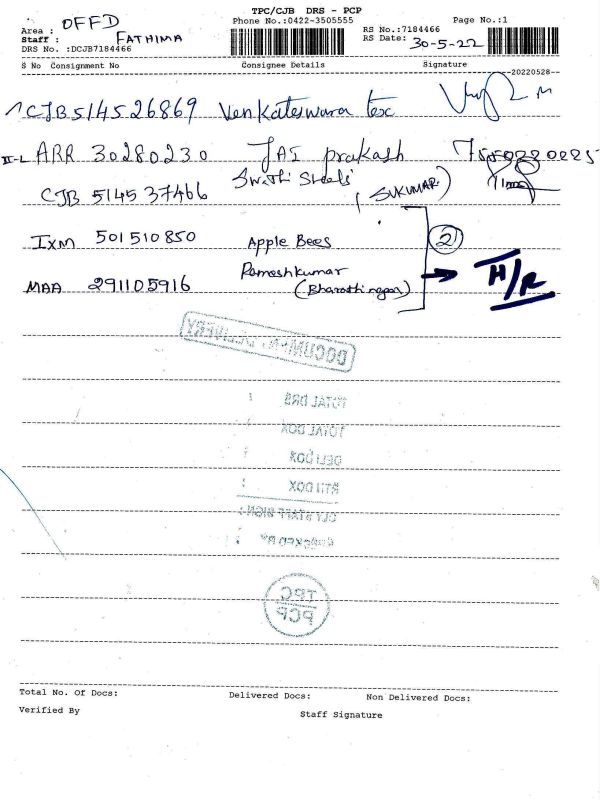 TPC/CJB DRS - PCP
Area : OFFD Phone No.:0422-3505555 Page No.:1
Staff : FATHIMA RS No.:7184466
DRS No. :DCJB7184466 RS Date: 30-5-22
S No Consignment No Consignee Details Signature
--20220528--
CJB 514526869 Venkateswara tex
II-L ARR 30280230 JAI prakash
CJB 514537466 Swathi Steels (SUKUMAR)
IXM 501510850 Apple Bees (2)
MAA 291105916 Rameshkumar H/R
(Bharathi nagar)
DOCUMENT DELIVERY
TOTAL DRS :
TOTAL DOX
DELI DOX :
RTN DOX :
DLY STAFF SIGN :
CHECKED BY :
TPC
PCP
Total No. Of Docs: Delivered Docs: Non Delivered Docs:
Verified By Staff Signature